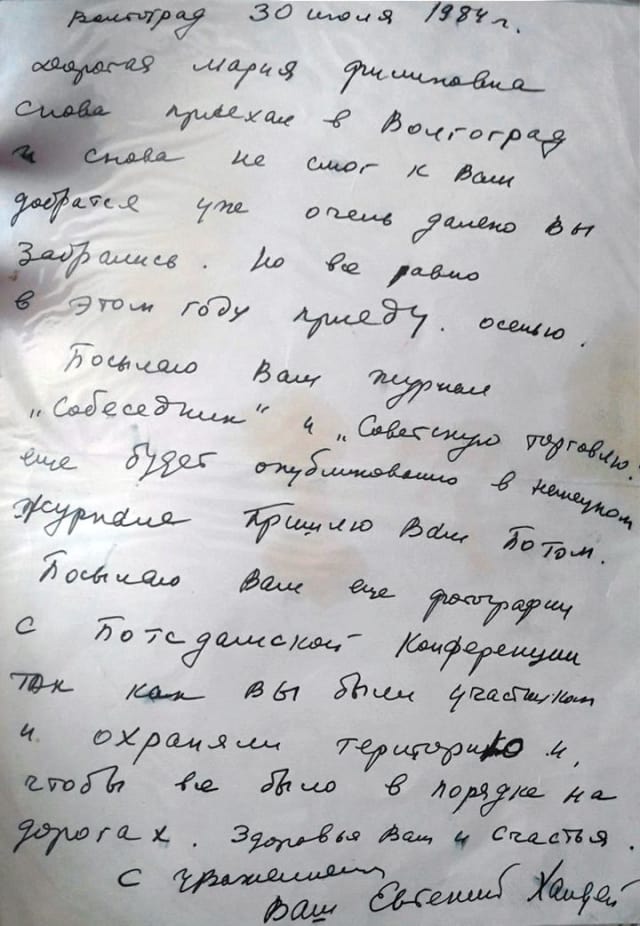 Волгоград 30 июля 1984 г.
Дорогая Мария Филиповна
снова приехал в Волгоград
и снова не смог к Вам
добратся уже очень далеко Вы
Забрались. Но все равно
в этом году приеду. осенью.
Посылаю Вам журнал
„Собеседник“ и „Советскую торговлю“
еще будет опубликовано в немецком
журнале Пришлю Вам Потом.
Посылаю Вам еще фотографии
с Потсдамской Конференции
так как Вы были участником
и охраняли територию и,
чтобы все было в порядке на
дорогах. Здоровья Вам и счастья.
С уважением
Ваш Евгений Халдей